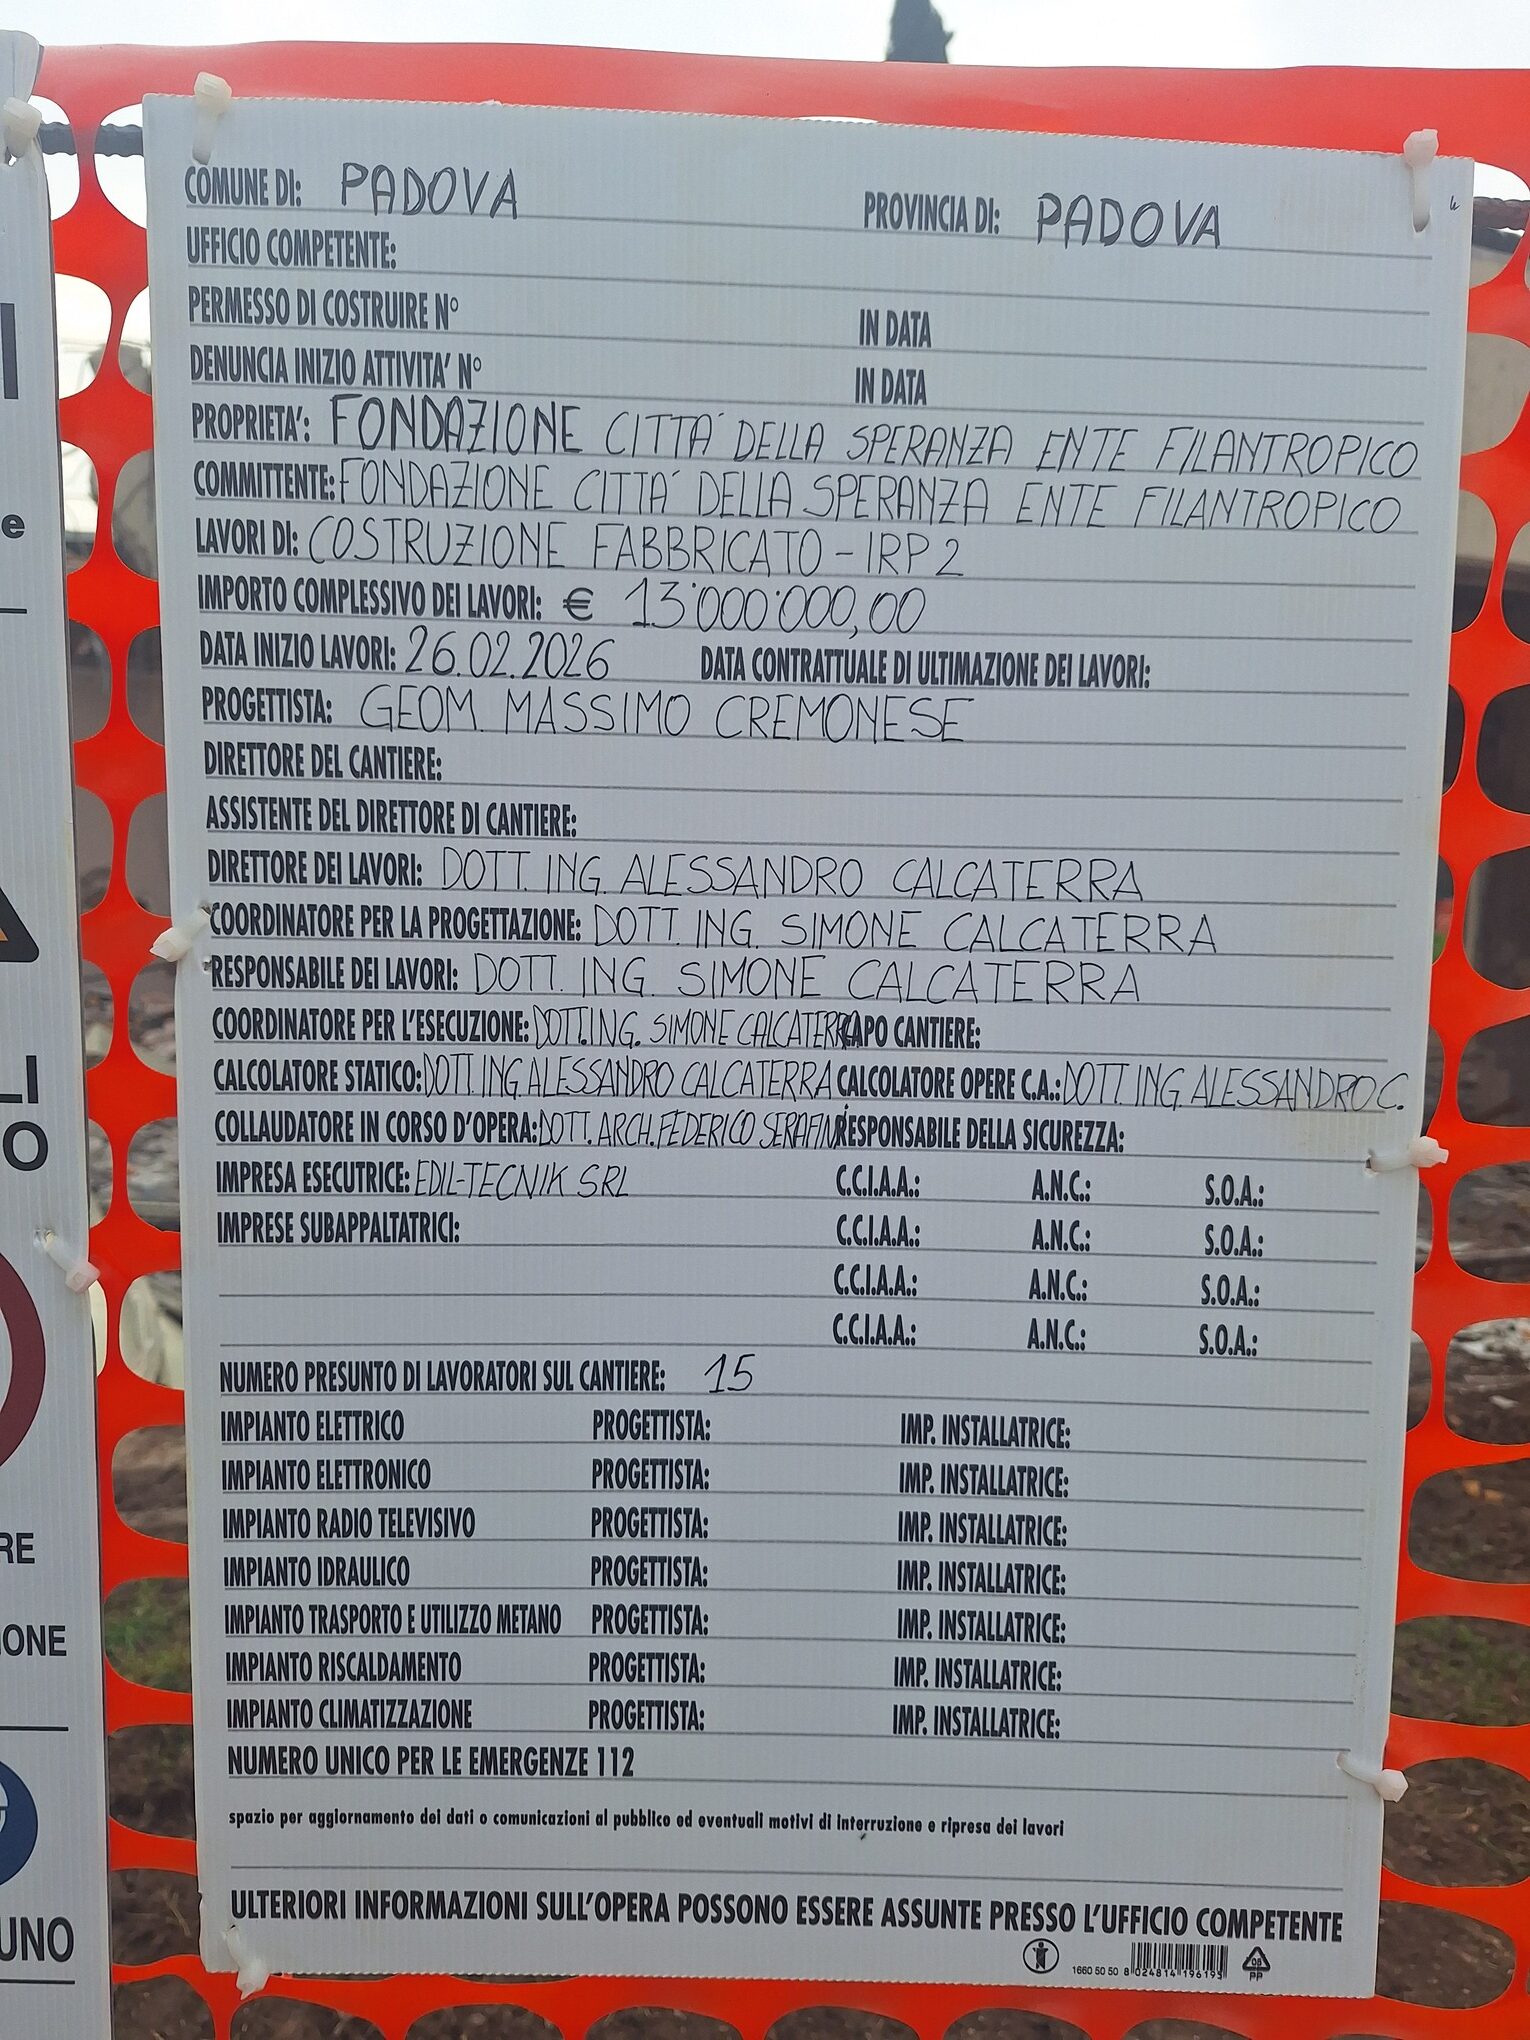 COMUNE DI: PADOVA PROVINCIA DI: PADOVA
UFFICIO COMPETENTE:
PERMESSO DI COSTRUIRE N° IN DATA
DENUNCIA INIZIO ATTIVITA' N° IN DATA
PROPRIETA': FONDAZIONE CITTA' DELLA SPERANZA ENTE FILANTROPICO
COMMITTENTE: FONDAZIONE CITTA' DELLA SPERANZA ENTE FILANTROPICO
LAVORI DI: COSTRUZIONE FABBRICATO - IRP 2
IMPORTO COMPLESSIVO DEI LAVORI: € 13'000'000,00
DATA INIZIO LAVORI: 26.02.2026 DATA CONTRATTUALE DI ULTIMAZIONE DEI LAVORI:
PROGETTISTA: GEOM. MASSIMO CREMONESE
DIRETTORE DEL CANTIERE:
ASSISTENTE DEL DIRETTORE DI CANTIERE:
DIRETTORE DEI LAVORI: DOTT. ING. ALESSANDRO CALCATERRA
COORDINATORE PER LA PROGETTAZIONE: DOTT. ING. SIMONE CALCATERRA
RESPONSABILE DEI LAVORI: DOTT. ING. SIMONE CALCATERRA
COORDINATORE PER L'ESECUZIONE: DOTT. ING. SIMONE CALCATERRA CAPO CANTIERE:
CALCOLATORE STATICO: DOTT. ING. ALESSANDRO CALCATERRA CALCOLATORE OPERE C.A.: DOTT. ING. ALESSANDRO C.
COLLAUDATORE IN CORSO D'OPERA: DOTT. ARCH. FEDERICO SERAFINI RESPONSABILE DELLA SICUREZZA:
IMPRESA ESECUTRICE: EDIL-TECNIK SRL C.C.I.A.A.: A.N.C.: S.O.A.:
IMPRESE SUBAPPALTATRICI: C.C.I.A.A.: A.N.C.: S.O.A.:
C.C.I.A.A.: A.N.C.: S.O.A.:
C.C.I.A.A.: A.N.C.: S.O.A.:
NUMERO PRESUNTO DI LAVORATORI SUL CANTIERE: 15
IMPIANTO ELETTRICO PROGETTISTA: IMP. INSTALLATRICE:
IMPIANTO ELETTRONICO PROGETTISTA: IMP. INSTALLATRICE:
IMPIANTO RADIO TELEVISIVO PROGETTISTA: IMP. INSTALLATRICE:
IMPIANTO IDRAULICO PROGETTISTA: IMP. INSTALLATRICE:
IMPIANTO TRASPORTO E UTILIZZO METANO PROGETTISTA: IMP. INSTALLATRICE:
IMPIANTO RISCALDAMENTO PROGETTISTA: IMP. INSTALLATRICE:
IMPIANTO CLIMATIZZAZIONE PROGETTISTA: IMP. INSTALLATRICE:
NUMERO UNICO PER LE EMERGENZE 112
spazio per aggiornamento dei dati o comunicazioni al pubblico ed eventuali motivi di interruzione e ripresa dei lavori
ULTERIORI INFORMAZIONI SULL'OPERA POSSONO ESSERE ASSUNTE PRESSO L'UFFICIO COMPETENTE
1660 50 50 8 024814 196195 PP